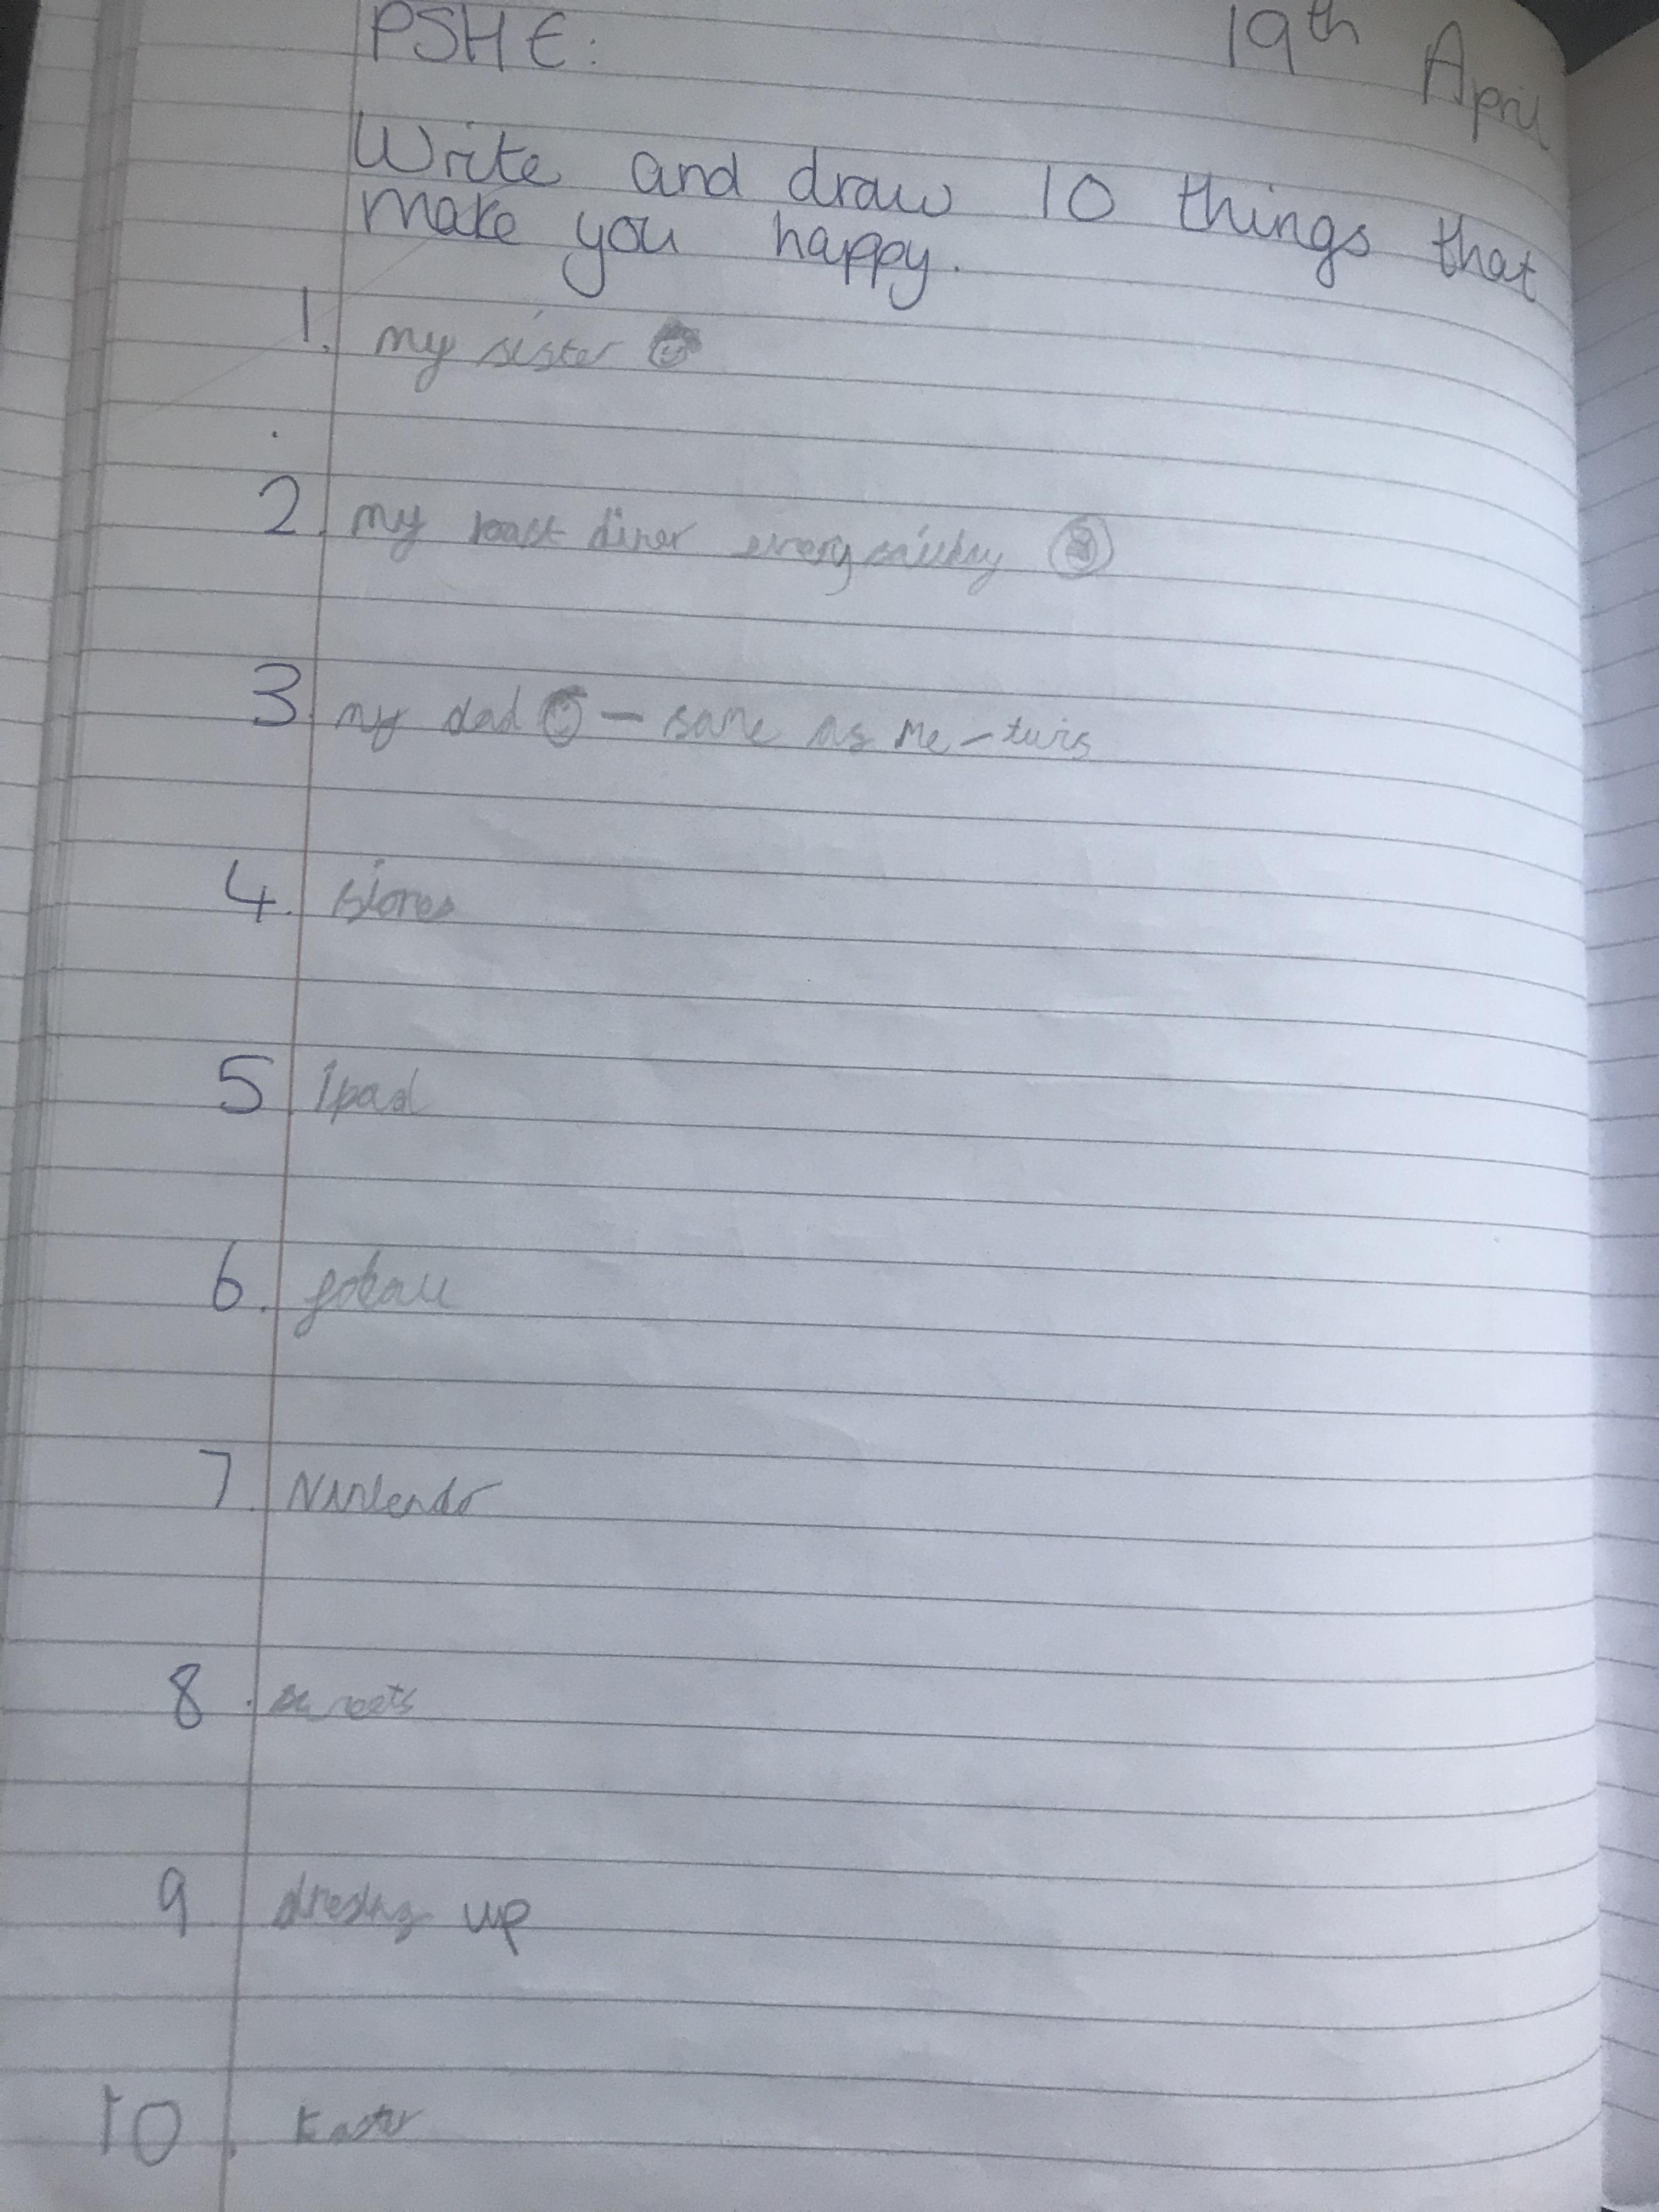 PSHE: 19th April
Write and draw 10 things that
make you happy.
1. my sister
2. my roast diner every
3. my dad - same as me - twis
4.
5. Ipad
6.
7. Nintendo
8. sweets
9 up
10. Easter